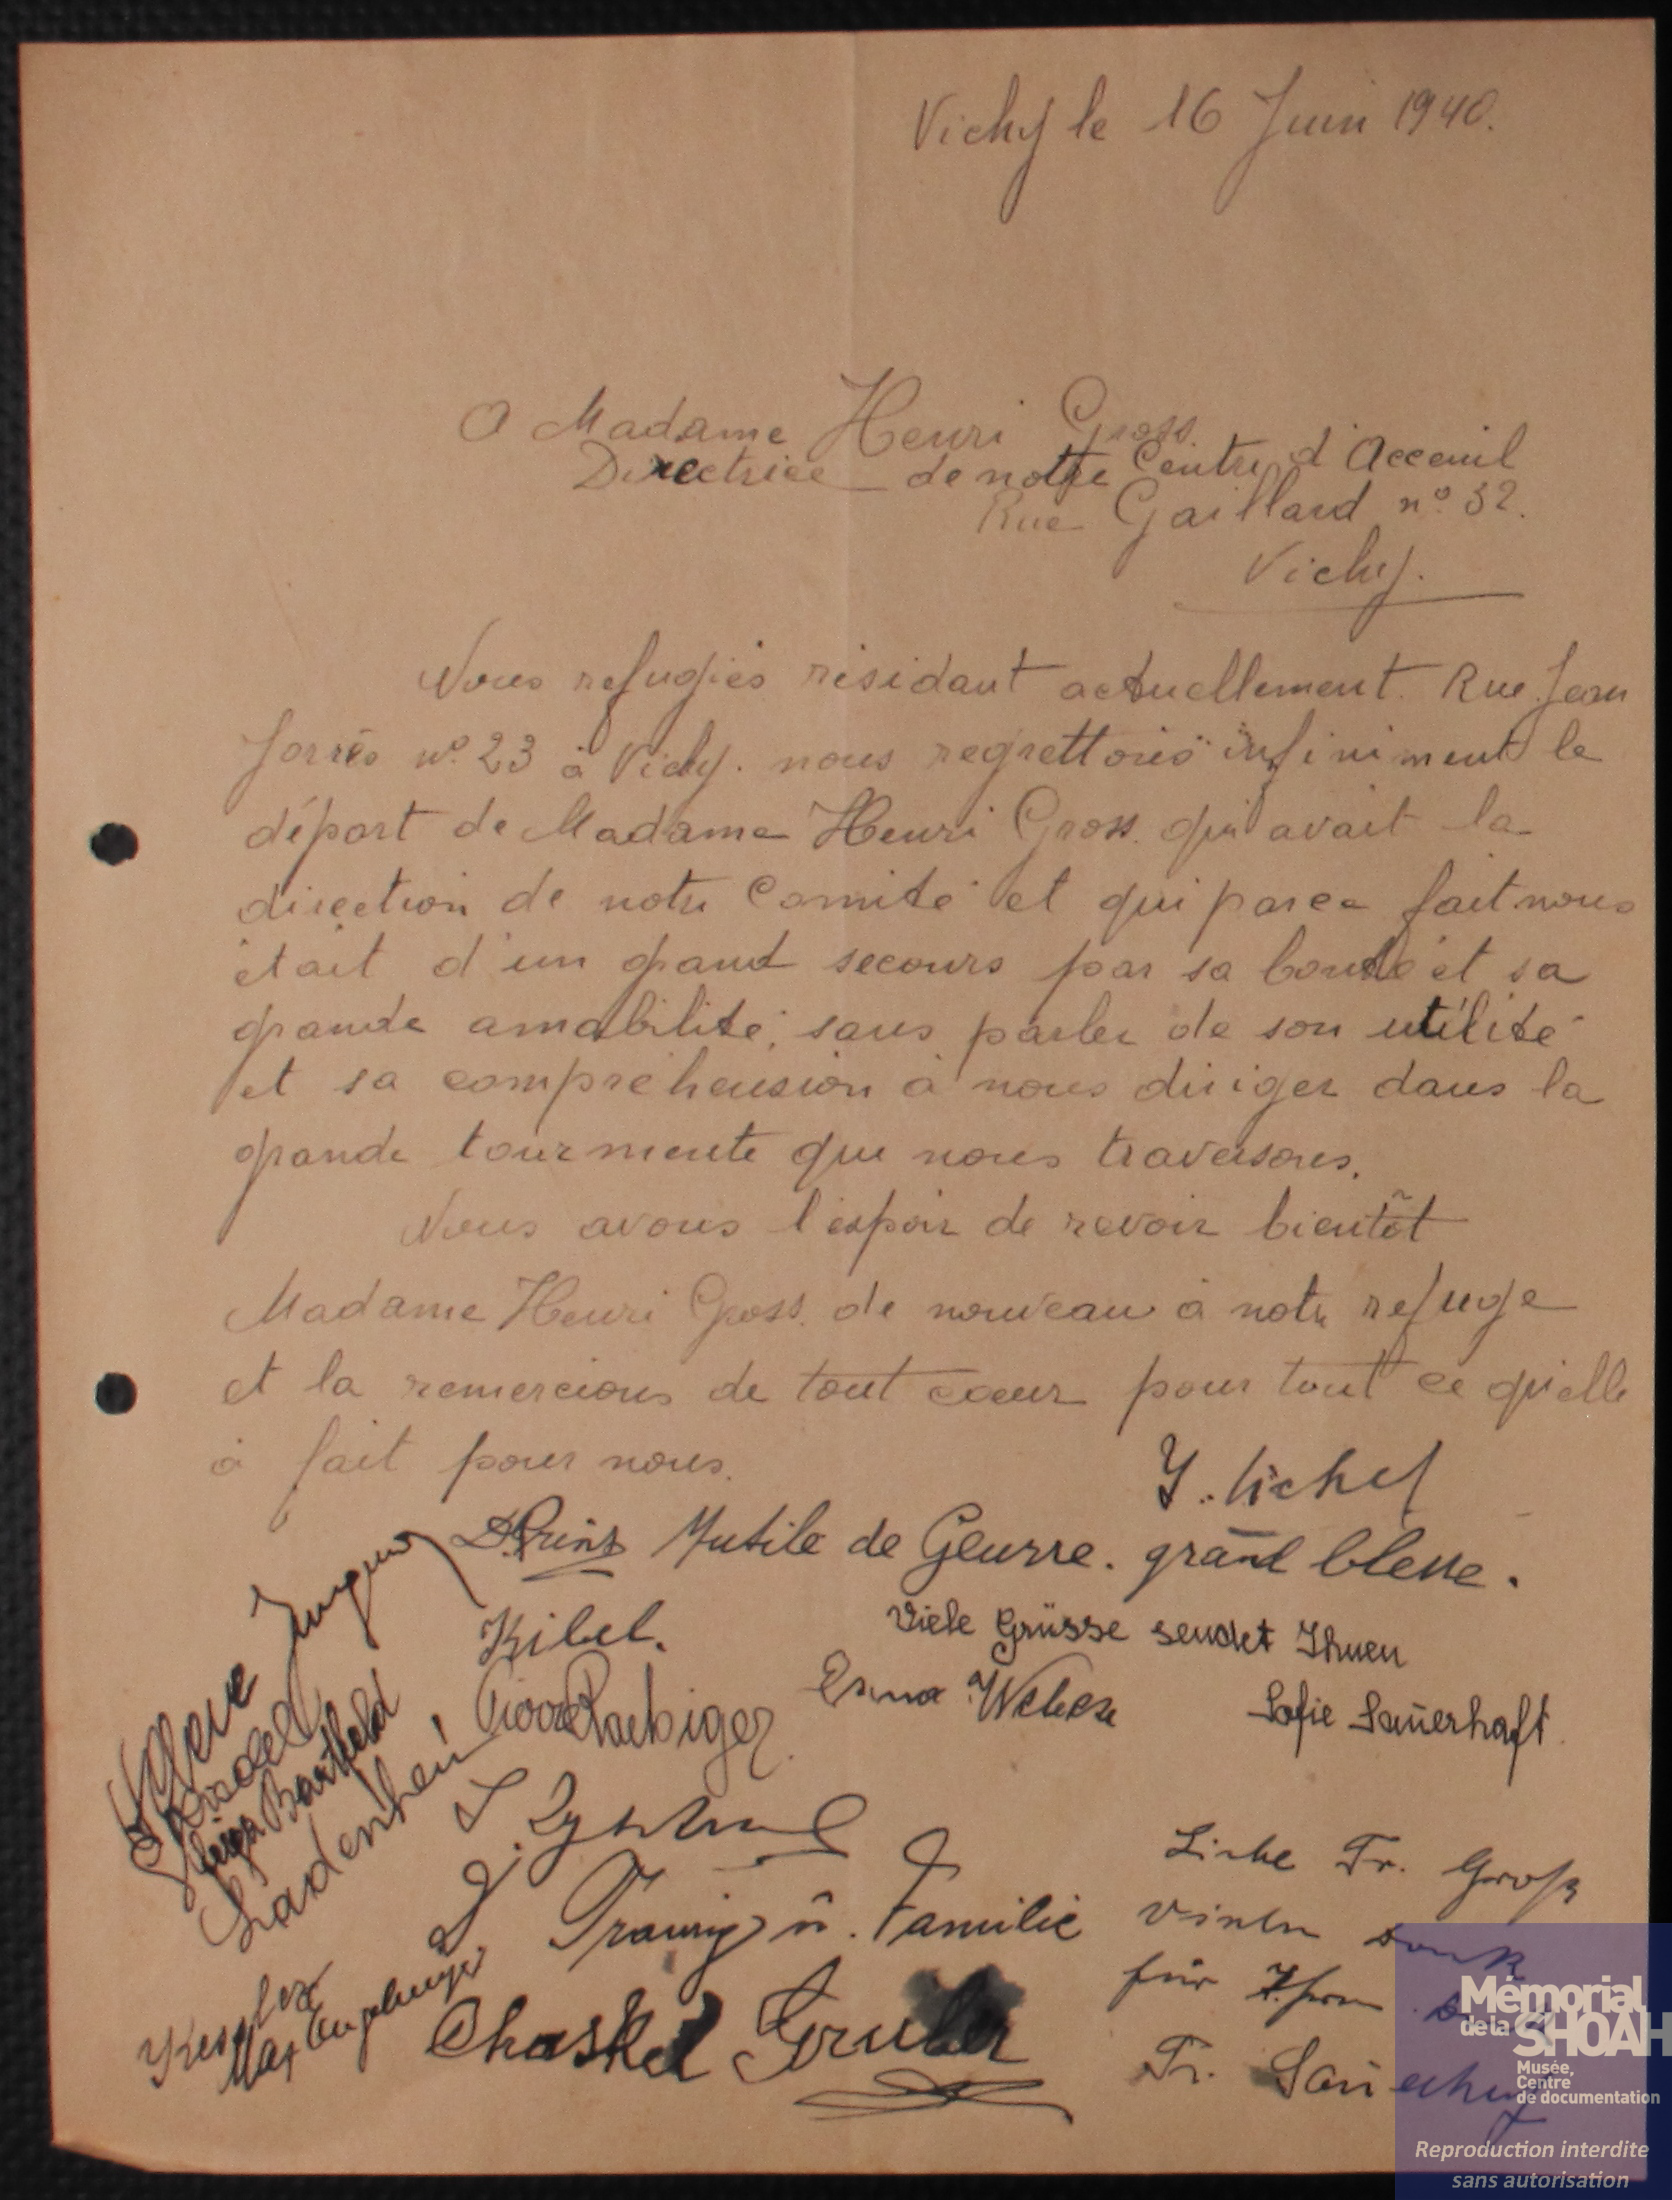 Vichy le 16 Juin 1940.
A Madame Henri Gross.
Directrice de notre Centre d'Acceuil
Rue Gaillard n° 32.
Vichy.
Nous refugiés résidant actuellement Rue Jean
Jorrès n° 23 à Vichy. nous regrettons infiniment le
départ de Madame Henri Gross. qui avait la
direction de notre Comité et qui parce fait nous
était d'un grand secours par sa bonté et sa
grande amabilité, sans parler de son utilité
et sa compréhension à nous diriger dans la
grande tourmente que nous traversons.
Nous avons l'espoir de revoir bientôt
Madame Henri Gross. de nouveau à notre refuge
et la remercions de tout coeur pour tout ce qu'elle
à fait pour nous.
Prinz Mutile de Geurre. grand blesse.
Kibel.
Viele Grüsse sendet Ihnen
Erna Weber
Sofie Sauerhaft.
Bartfeld
Ladenheim
Traurig u. Familie
Kessler
Max
Chaskel Gruber
Liebe Fr. Groß
vielen Dank
für Ihren
Fr. Sauerhaft
Mémorial
de la SHOAH
Musée,
Centre
de documentation
Reproduction interdite
sans autorisation